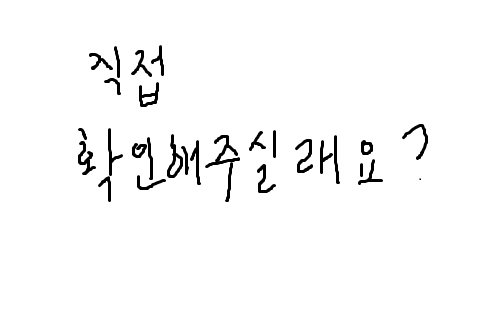 직접
확인해주실래요?